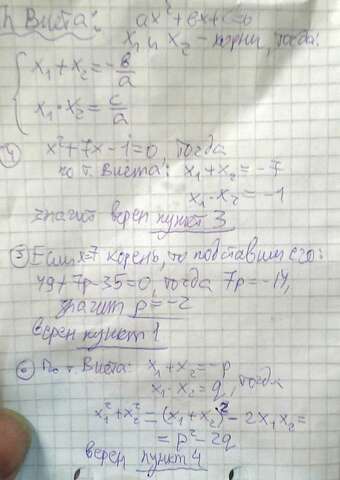 т. Виета: ax²+bx+c=0
x₁ и x₂ - корни, тогда:
{ x₁+x₂=-b/a
x₁·x₂=c/a
④ x²+7x-1=0, тогда
по т. Виета: x₁+x₂=-7
x₁·x₂=-1
значит верен пункт 3
⑤ Если x=7 корень, то подставим его:
49+7p-35=0, тогда 7p=-14,
значит p=-2
верен пункт 1
⑥ По т. Виета: x₁+x₂=-p
x₁·x₂=q, тогда
x₁²+x₂²=(x₁+x₂)²-2x₁x₂=
=p²-2q
верен пункт 4